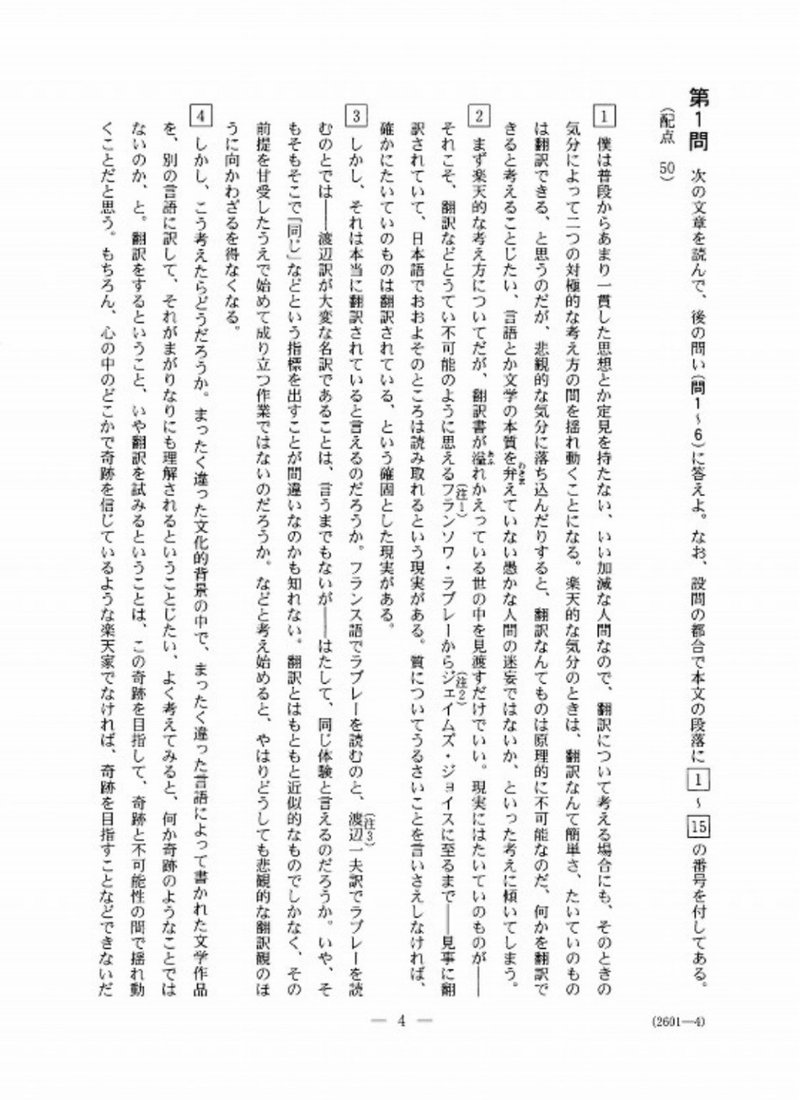 第1問　次の文章を読んで、後の問い(問1～6)に答えよ。なお、設問の都合で本文の段落に1～15の番号を付してある。
(配点　50)
1　僕は普段からあまり一貫した思想とか定見を持たない、いい加減な人間なので、翻訳について考える場合にも、そのときの
気分によって二つの対極的な考え方の間を揺れ動くことになる。楽天的な気分のときは、翻訳なんて簡単さ、たいていのもの
は翻訳できる、と思うのだが、悲観的な気分に落ち込んだりすると、翻訳なんてものは原理的に不可能なのだ、何かを翻訳で
きると考えることじたい、言語とか文学の本質を弁えていない愚かな人間の迷妄ではないか、といった考えに傾いてしまう。
わきま
2　まず楽天的な考え方についてだが、翻訳書が溢れかえっている世の中を見渡すだけでいい。現実にはたいていのものが――
あふ
それこそ、翻訳などとうてい不可能のように思えるフランソワ・ラブレーからジェイムズ・ジョイスに至るまで――見事に翻
(注1)
(注2)
訳されていて、日本語でおおよそのところは読み取れるという現実がある。質についてうるさいことを言いさえしなければ、
確かにたいていのものは翻訳されている、という確固とした現実がある。
3　しかし、それは本当に翻訳されていると言えるのだろうか。フランス語でラブレーを読むのと、渡辺一夫訳でラブレーを読
(注3)
むのとでは――渡辺訳が大変な名訳であることは、言うまでもないが――はたして、同じ体験と言えるのだろうか。いや、そ
もそもそこで「同じ」などという指標を出すことが間違いなのかも知れない。翻訳とはもともと近似的なものでしかなく、その
前提を甘受したうえで始めて成り立つ作業ではないのだろうか。などと考え始めると、やはりどうしても悲観的な翻訳観のほ
うに向かわざるを得なくなる。
4　しかし、こう考えたらどうだろうか。まったく違った文化的背景の中で、まったく違った言語によって書かれた文学作品
を、別の言語に訳して、それがまがりなりにも理解されるということじたい、よく考えてみると、何か奇跡のようなことでは
ないのか、と。翻訳をするということ、いや翻訳を試みるということは、この奇跡を目指して、奇跡と不可能性の間で揺れ動
くことだと思う。もちろん、心の中のどこかで奇跡を信じているような楽天家でなければ、奇跡を目指すことなどできないだ
― 4 ―
(2601―4)